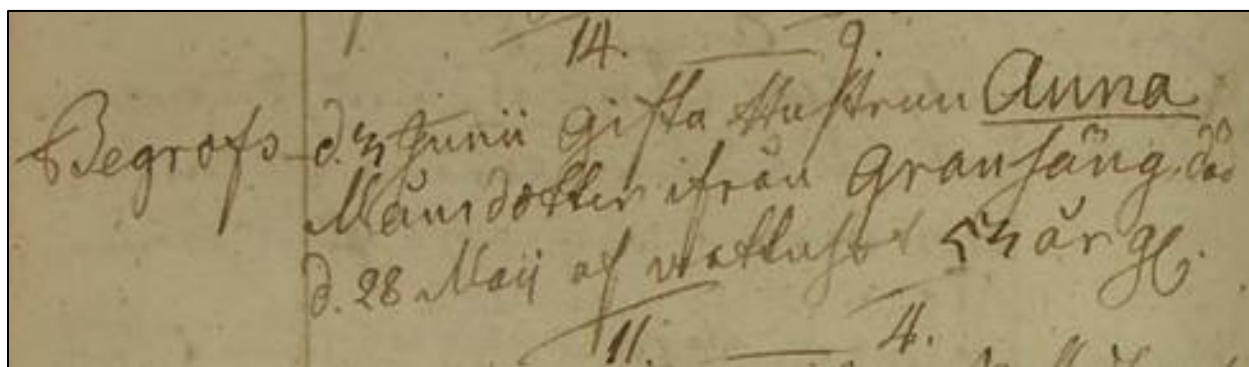 14. 9.
Begrofs d. 3 Junii Gifta Hustrun Anna
Månsdotter ifrån Gransäng. död
d. 28 Maij af wattusot 53 år gl.
11. 4.